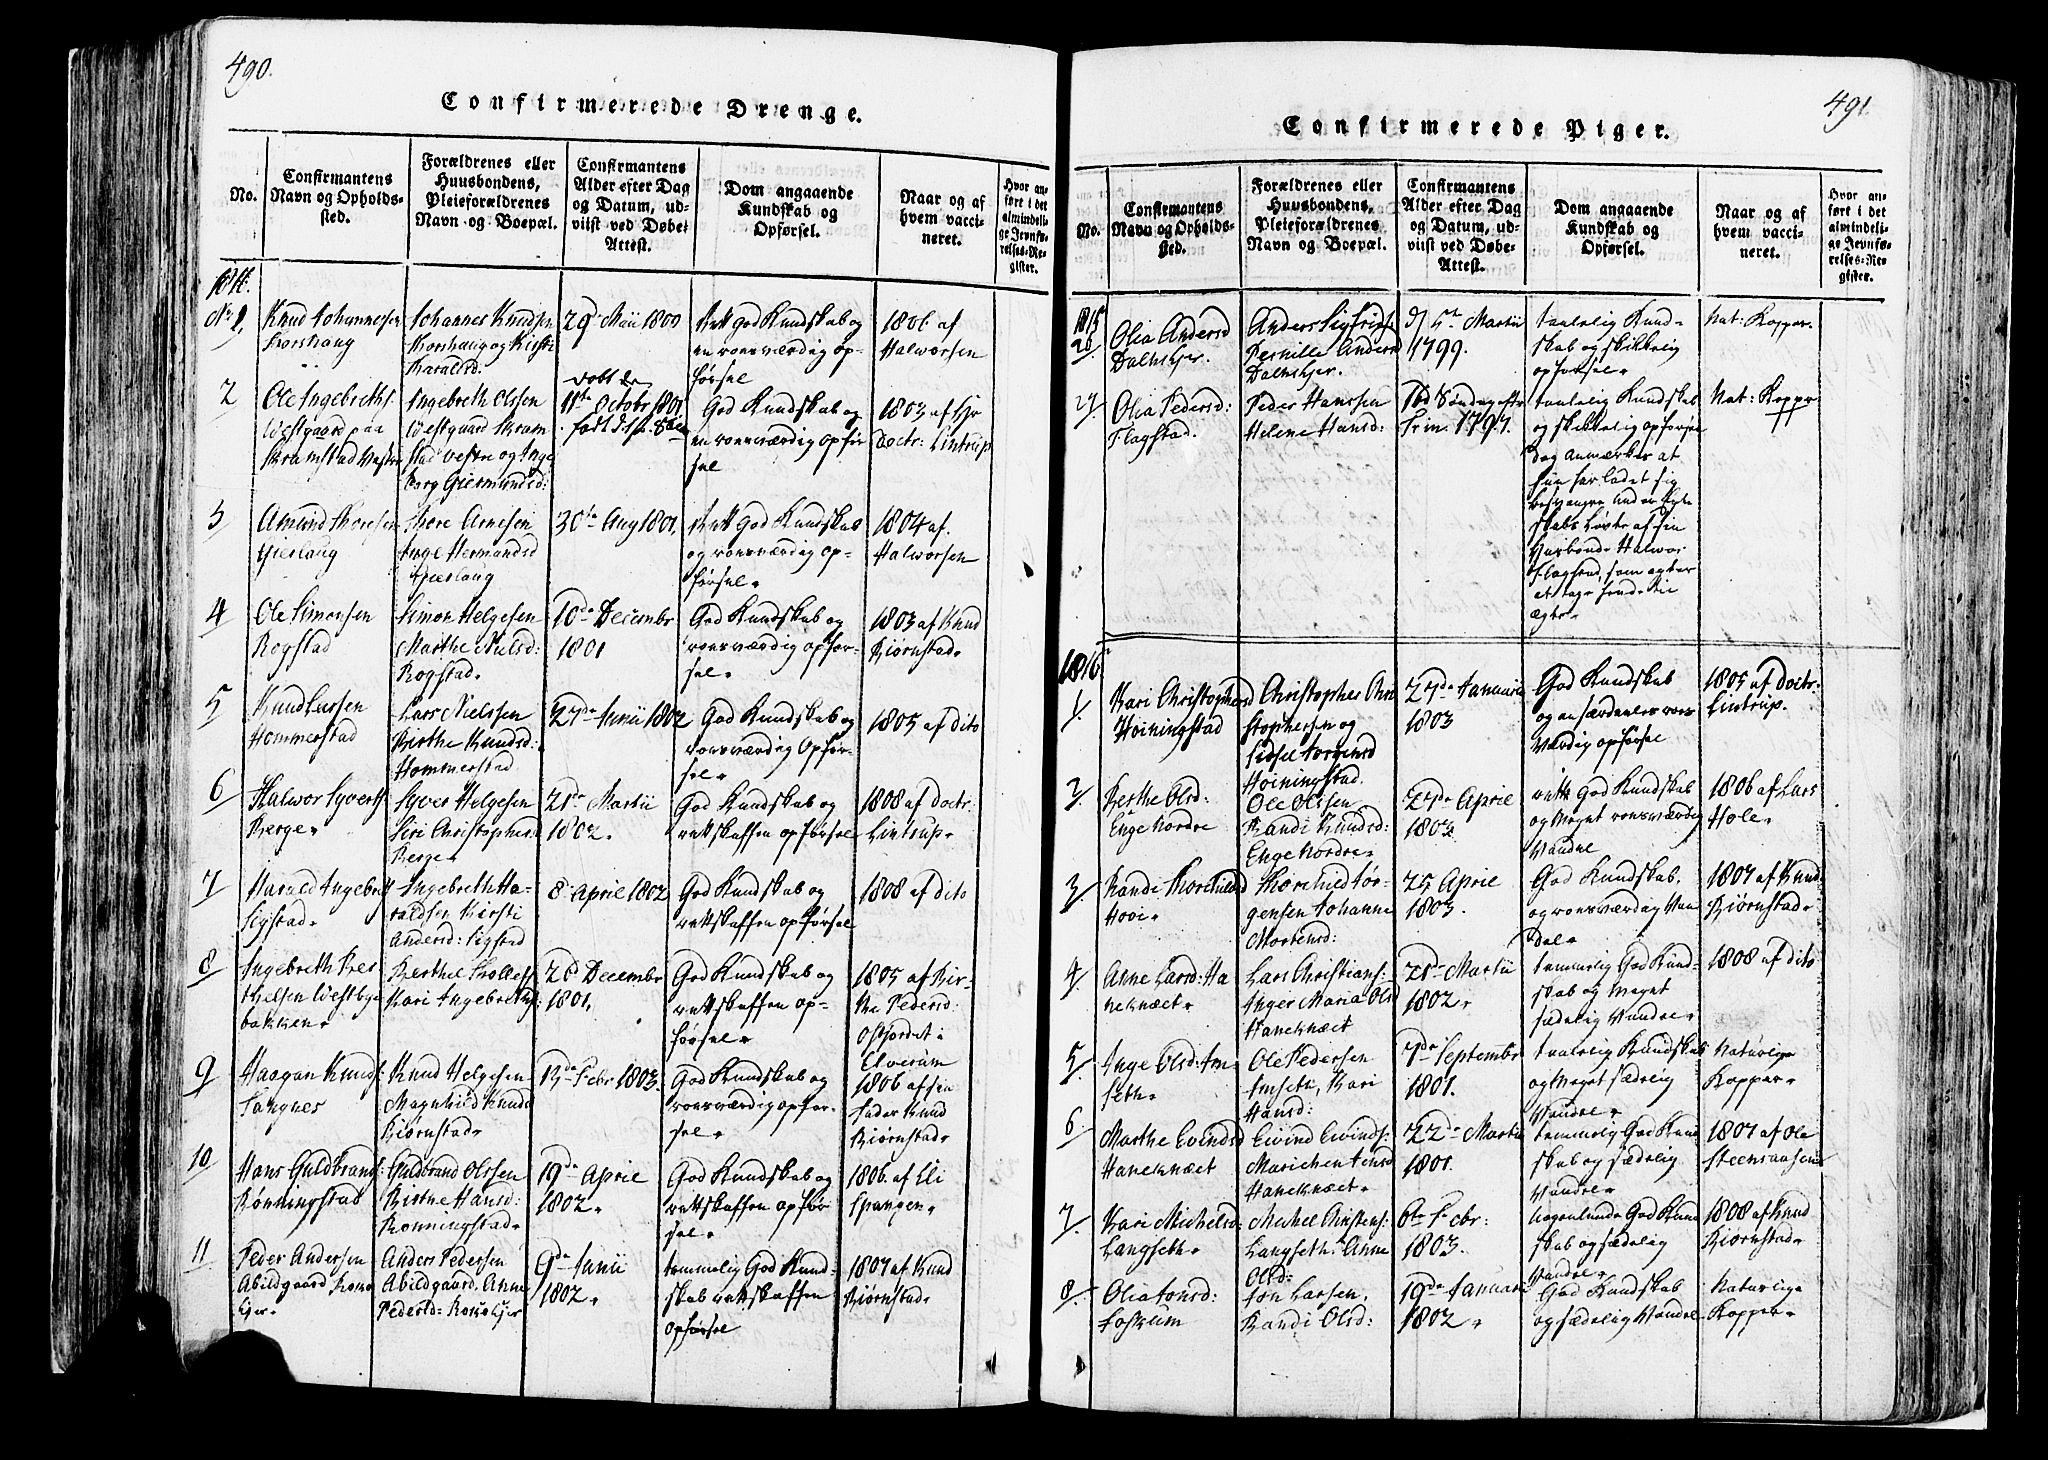 490.
Confirmerede Drenge.
No.
Confirmantens
Navn og Opholds-
sted.
Forældrenes eller
Huusbondens,
Pleieforældrenes
Navn og Boepæl.
Confirmantens
Alder efter Dag
og Datum, ud-
viist ved Døbe-
Attest.
Dom angaaende
Kundskab og
Opførsel.
Naar og af
hvem vacci-
neret.
Hvor an-
ført i det
almindeli-
ge Jevnfø-
relses-Re-
gister.
1816.
No 1,
Knud Johannesen
Korshaug
Johannes Knudsen
Korshaug og Kirsti
Haraldsd.
29 Maii 1800
Ret god Kundskab og
en roesværdig op-
førsel
1806 af
Halworsen
2
Ole Ingebreths:
Westgaard paa
Kramstad Vestre
Ingebreth Olssen
Westgaard Kram
stad vestre og Inge
borg Giermundsd:
døbt de
11te Octobr 1801
født d.
God Kundskab og
en roesværdig opfør
sel
1803 af Hr
Doctr: Lintrup
3
Amund Thoresen
Gieslaug
Thore Arnesen
Inge Hermandsd
Gieslaug
30te Aug 1801,
Ret god Kundskab
og roesværdig op-
førsel.
1804 af.
Halworsen
4
Ole Simonsen
Rogstad
Simon Helgesen
Marthe Nielsd:
Rogstad.
10de Decembr
1801
God Kundskab og
roesværdig opfør-
sel.
1803 af Knud
Biørnstad.
5
Knud Larssen
Hommerstad
Lars Nielssen
Birthe Knudsd:
Hommerstad
27de Junii 1802
God Kundskab og
roesværdig Opfør-
sel.
1805 af dito
6
Halwor Syverts
Berge.
Syver Helgesen
Siri Christophersd
Berge.
21de Martii
1802.
God Kundskab og
retskaffen opførsel
1808 af Doctr.
Lintrup.
7
Harald Ingebret
Sigstad.
Ingebreth Ha-
raldsen Kirsti
Andersd: Sigstad
8 April 1802
God Kundskab og
retskaffen opførsel
1808 af dito
8
Ingebreth Bers
thelsen Westbye
bakken.
Berthel Trollefs
Kari Ingebrethsd:
26 Decembr
1801,
God Kundskab og
retskaffen op-
førsel.
1805 af Bir-
the Pedersd:
Osfjordet i
Elverum
9
Haagen Knuds:
Tangnes
Knud Helgesen
Magnhild Knudsd
Biørnstad.
13de Febr 1803.
God Kundskab og
roesværdig opfør-
sel.
1806 af sin
Fader Knud
Biørnstad.
10
Hans Guldbrands:
Rønningstad
Guldbrand Olssen
Birthe Hansd:
Rønningstad.
19de April
1802.
God Kundskab og
retskaffen opfør
sel.
1806. af Eli
Spangen.
11
Peder Andersen
Abildgaard Roko
kjer.
Anders Pedersen
Abildgaard. Anne
Pedersd: Rokokjer
9de Junii
1802.
temmelig God Kund-
skab retskaffen
Opførsel
1807 af Knud
Biørnstad.
491.
Confirmerede Piger.
No.
Confirmantens
Navn og Opholds-
sted.
Forældrenes eller
Huusbondens,
Pleieforældrenes
Navn og Boepæl.
Confirmantens
Alder efter Dag
og Datum, ud-
viist ved Døbe-
Attest.
Dom angaaende
Kundskab og
Opførsel.
Naar og af
hvem vacci-
neret.
Hvor an-
ført i det
almindeli-
ge Jevnfø-
relses-Re-
gister.
1815
26.
Olia Andersd
Dalmskjer.
Anders Sigfrids
Pernille Andersd
Dalmskjer.
d 5te Martii
1799.
taalelig Kund-
skab og skikkelig
opførsel.
Nat: Kopper.
27
Olia Pedersd:
Flagstad.
Peder Hanssen
Helene Hansd:
Søndag eftr
Trin. 1797.
taalelig Kundskab
og skikkelig opførsel
dog anmærkes at
hun har ladet sig
besvangre under Egte
skabs Løvte af sin
Huusbonde Halwor
Flagstad, som agter
at tage hende til
ægte.
Nat: Kopper
1816
1.
Kari Christophersd
Høiningstad
Christopher Chri
stophersen og
Sidsel Jørgensd
Høiningstad.
27de Januarii
1803
God Kundskab
og en særdeeles roes
værdig opførsel
1805 af Doctr:
Lintrup.
2.
Berthe Olsd:
Enge Nordre
Ole Olssen
Randi Knudsd:
Enge Nordre.
23de April
1802.
rett God Kundskab
og meget roesværdig
Vandel
1806 af Lars
Hole.
3.
Randi Thorchildsd
Høie.
Thorchild Jør-
gensen Johanne
Mortensd:
25 April
1803.
God Kundskab.
og roesværdig Van
del.
1807 af Knud
Biørnstad.
4.
Anne Larsd: Ha
neknæet.
Lars Christians:
Inger Maria Olsd
Haneknæet
21de Martii
1802.
temmelig God Kund-
skab og meget
sædelig Vandel.
1808 af dito
5.
Inge Olsd: Im
seth.
Ole Pedersen
Imseth, Kari
Hansd:
7de Septembr
1801.
taalelig Kundskab
og meget sædelig
Vandel.
Naturlige
Kopper.
6.
Marthe Evindsd
Haneknæet
Eivind Eivinds:
Marichen Jensd
Haneknæet.
22de Martii
1801.
temmelig God Kund
skab og sædelig
Vandel.
1807 af Ole
Steensaasen
7.
Kari Michelsd:
Langseth.
Michel Christens:
Langseth. Anne
Olsd:
6te Febr:
1803.
nogenlunde God Kund
skab og sædelig
Vandel.
1808 af Knud
Biørnstad.
8.
Olia Jonsd:
Foskum
Jon Larsen,
Randi Olsd:
19de Januarii
1802.
God Kundskab
og sædelig Vandel
Naturlige
Kopper.